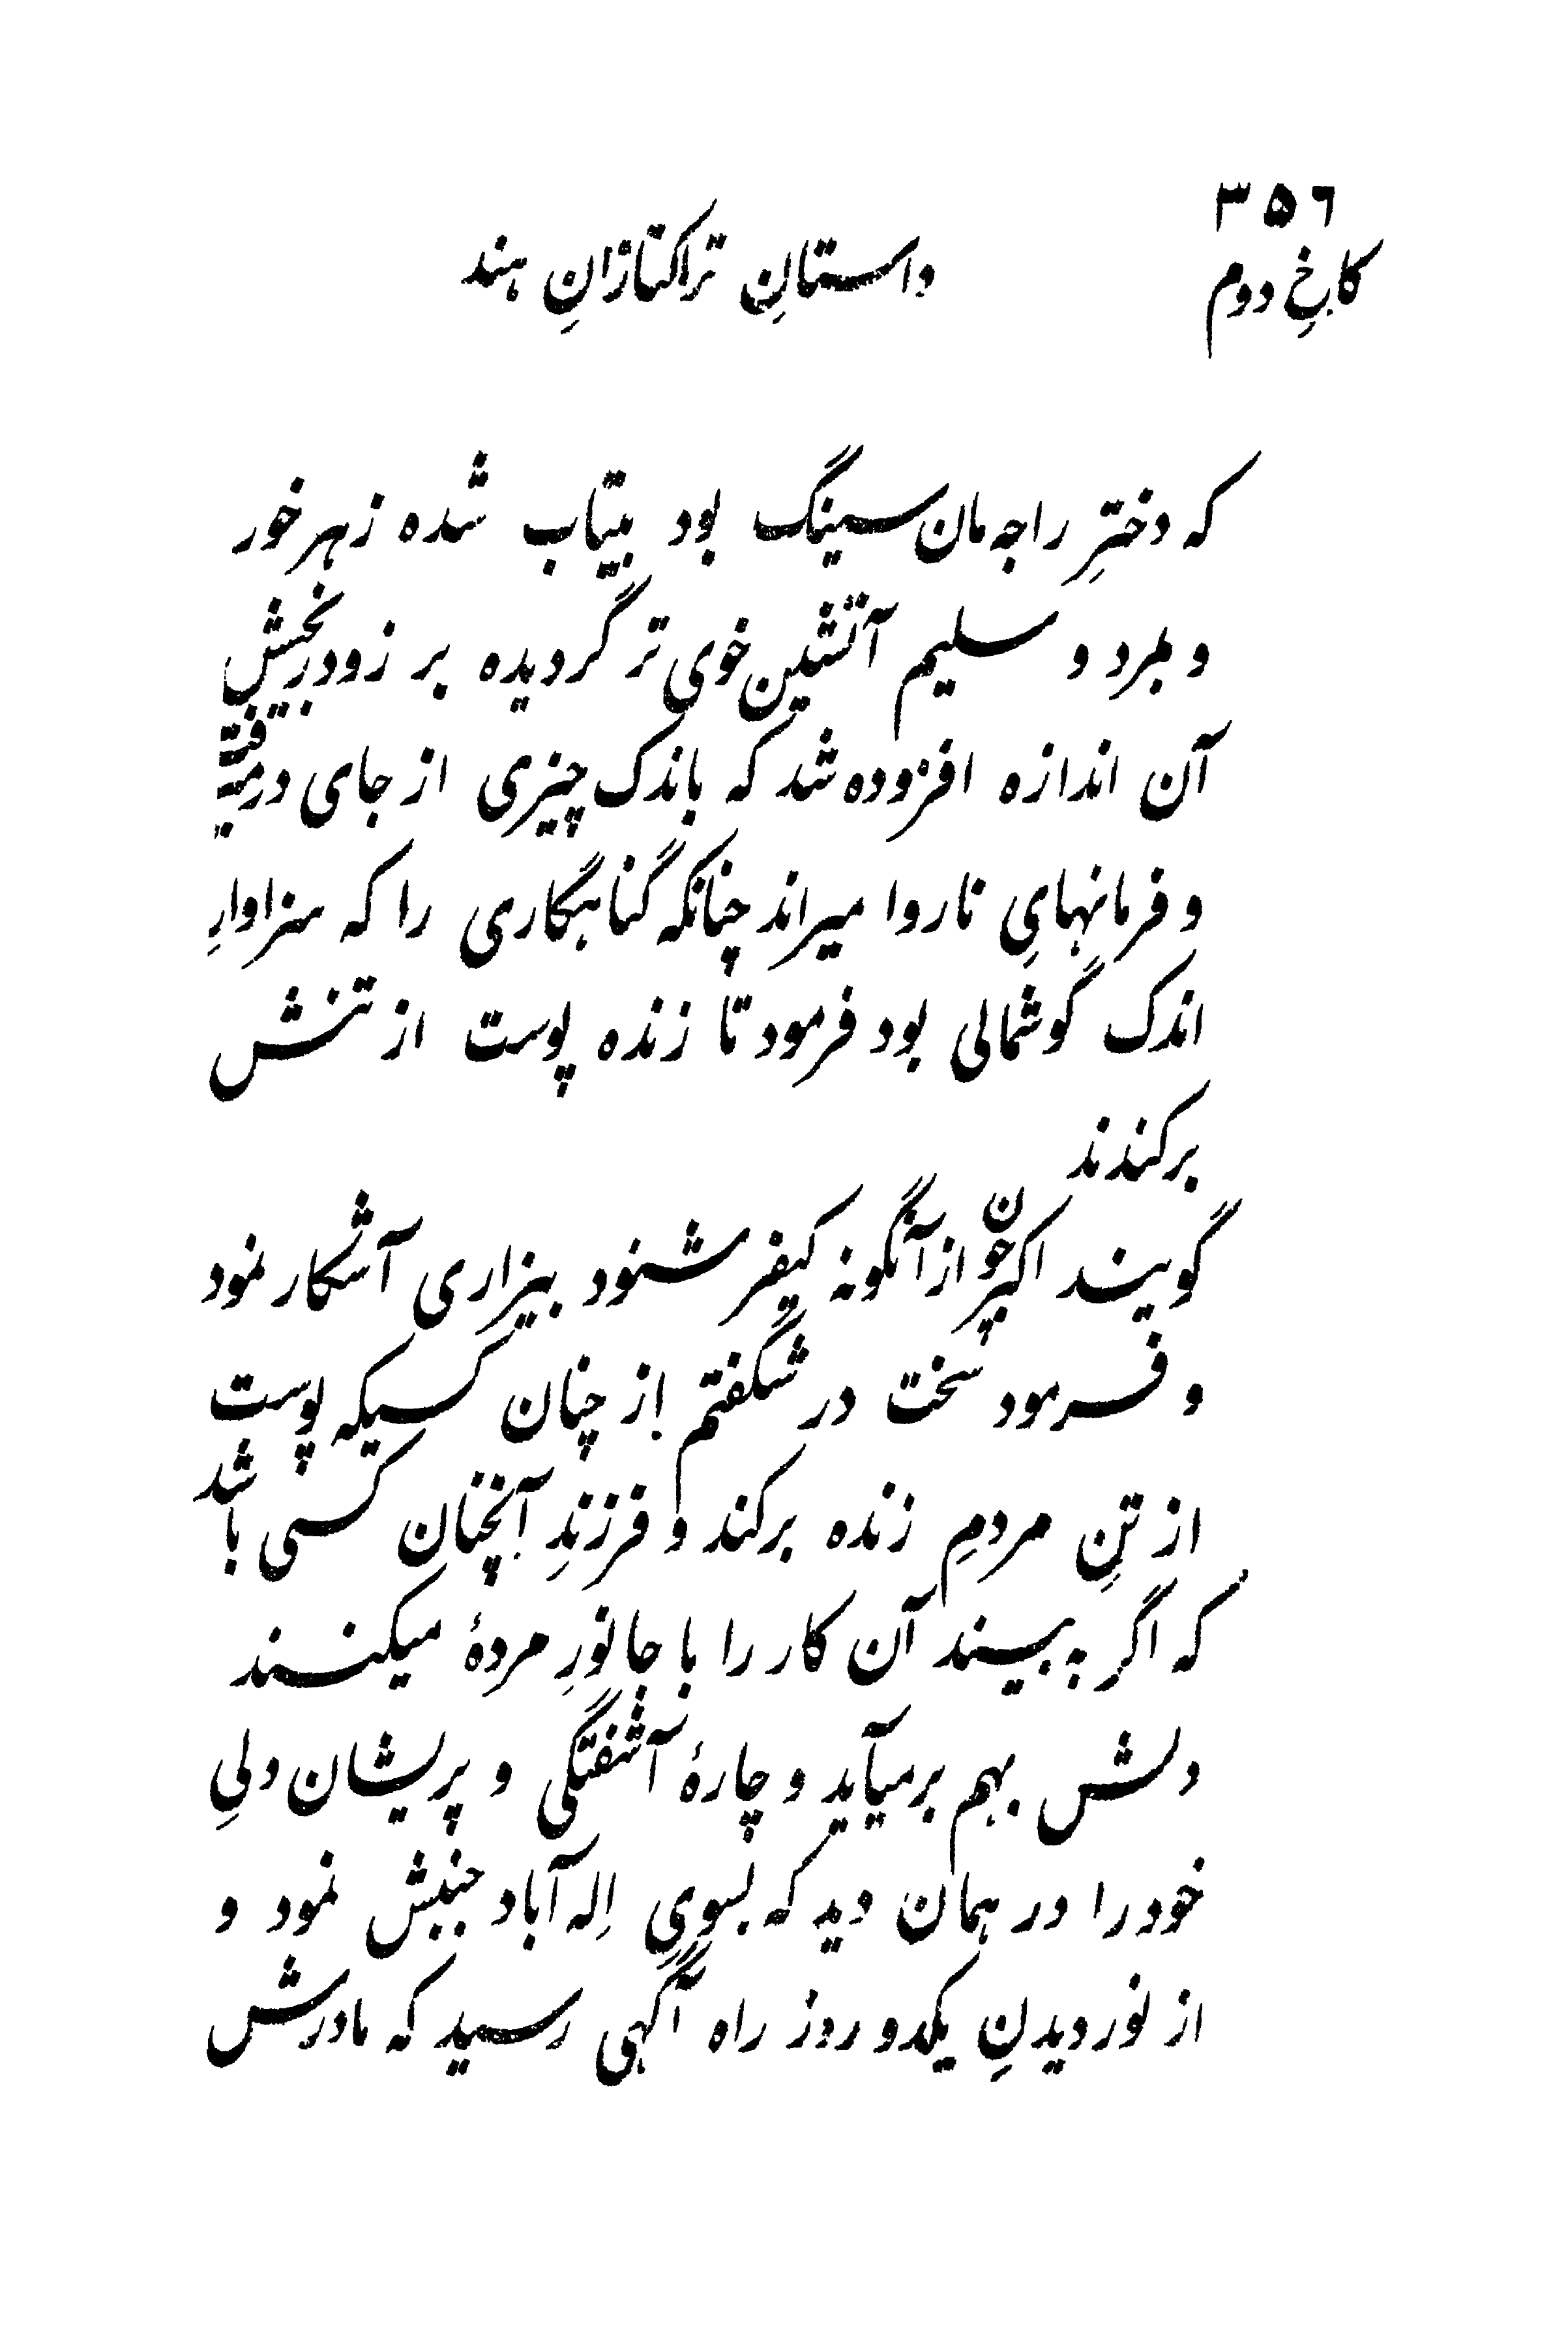 ۳۵۶
کاخِ دوم
داستانِ ترکتازانِ هند
که دخترِ راجه مان سینگ بود بیتاب شده زهر خور
و بمرد و سلیم آتشین خوی تر گردیده بر زودرنجیش
آن اندازه افزوده شد که باندک چیزی از جای درمیرفت
و فرمانهایِ ناروا میراند چنانکه گناهگاری را که سزاوارِ
اندک گوشمالی بود فرمود تا زنده پوست از تنش
برکندند
گویند اکبر چون از آنگونه کیفر شنود بیزاری آشکار نمود
و فرمود سخت در شگفتم از چنان کسیکه پوست
از تنِ مردمِ زنده برکند و فرزندِ آنچنان کسی باشد
که اگر به بیند آن کار را با جانورِ مردهٔ میکنند
دلش بهم برمیآید و چارهٔ آشفتگی و پریشان دلیِ
خود را در همان دید که بسویِ اِله آباد جنبش نمود و
از نوردیدنِ یکدو روز راه آگهی رسید که مادرش